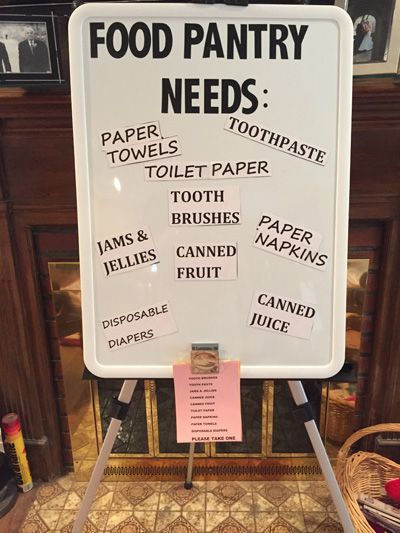 FOOD PANTRY
NEEDS:
PAPER
TOWELS
TOOTHPASTE
TOILET PAPER
TOOTH
BRUSHES
JAMS &
JELLIES
CANNED
FRUIT
PAPER
NAPKINS
DISPOSABLE
DIAPERS
CANNED
JUICE
TOOTH BRUSHES
TOOTH PASTE
JAMS & JELLIES
CANNED JUICE
CANNED FRUIT
TOILET PAPER
PAPER NAPKINS
PAPER TOWELS
DISPOSABLE DIAPERS
PLEASE TAKE ONE